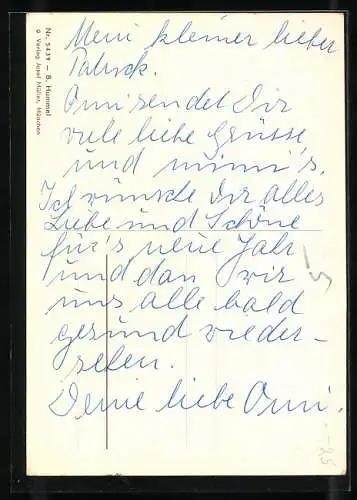 Nr. 5439 - B. Hummel
© Verlag Josef Müller, München
Mein kleiner lieber
Patrick.
Omi sendet Dir
viele liebe Grüsse
und mimi's.
Ich wünsche Dir alles
Liebe und Schöne
für's neue Jahr
und dan wir
uns alle bald
gesund wieder-
sehen.
Deine liebe Omi.